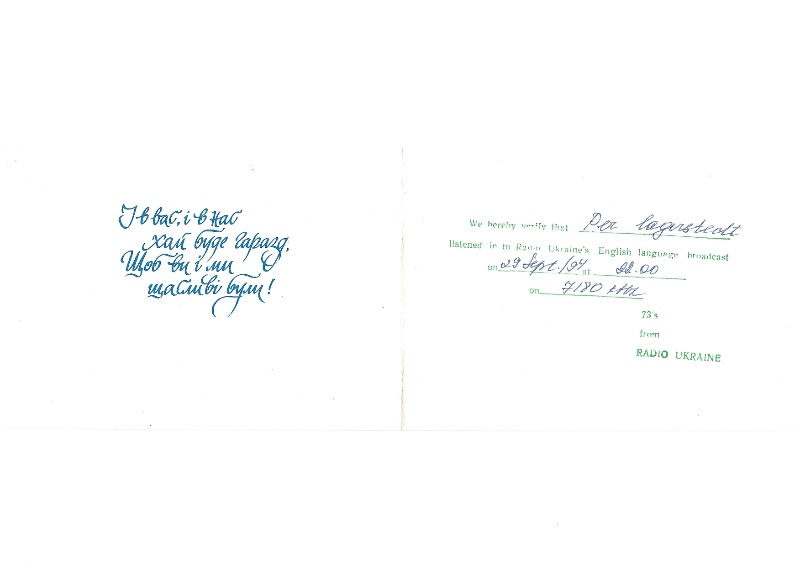 І в вас, і в нас
хай буде гаразд,
Щоб ви і ми
щасливі були!
We hereby verify that Per Lagerstedt
listened in to Radio Ukraine's English language broadcast
on 29 Sept./94 at 22.00
on 7180 kHz
73's
from
RADIO UKRAINE